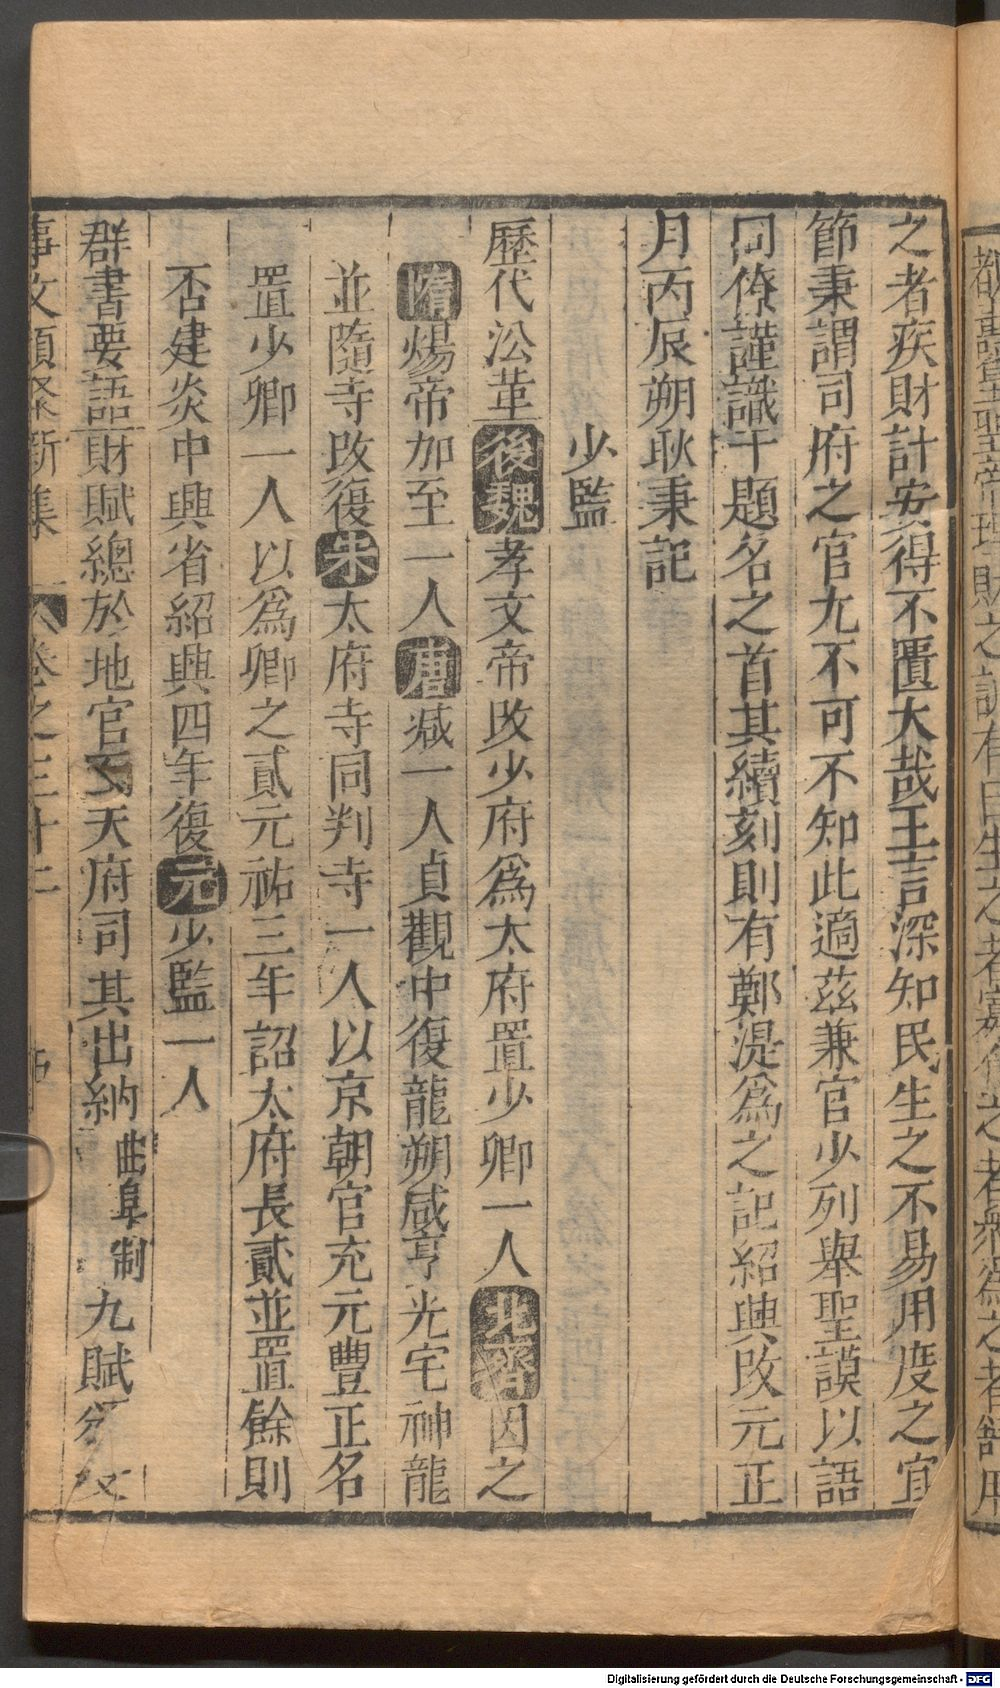 之者疾財計安得不匱大哉王言深知民生之不易用度之宜
節秉謂司府之官尢不可不知此適茲兼官少列舉聖謨以語
同僚謹識于題名之首其續刻則有鄭湜爲之記紹興改元正
月丙辰朔耿秉記
少監
歷代沿革後魏孝文帝改少府爲太府置少卿一人北齊因之
隋煬帝加至二人唐減一人貞觀中復龍朔咸亨光宅神龍
並隨寺改復宋太府寺同判寺一人以京朝官充元豐正名
置少卿一人以爲卿之貳元祐三年詔太府長貳並置餘則
否建炎中興省紹興四年復元少監一人
群書要語財賦總於地官 天府司其出納曲阜制九賦
事文類聚新集 卷之三十二
Digitalisierung gefördert durch die Deutsche Forschungsgemeinschaft - DFG